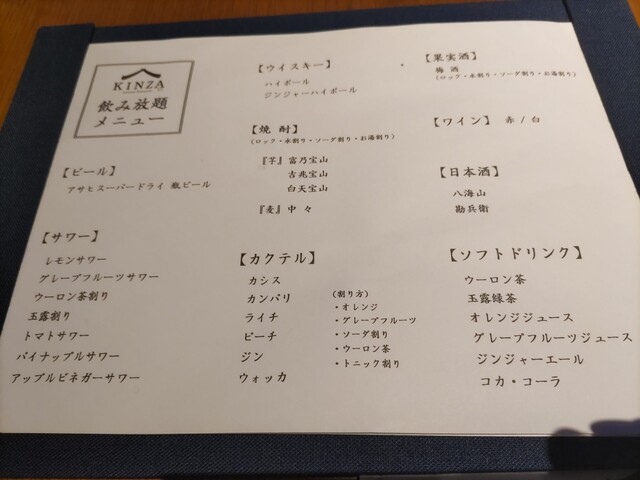 KINZA
飲み放題
メニュー
【ビール】
アサヒスーパードライ 瓶ビール
【サワー】
レモンサワー
グレープフルーツサワー
ウーロン茶割り
玉露割り
トマトサワー
パイナップルサワー
アップルビネガーサワー
【ウイスキー】
ハイボール
ジンジャーハイボール
【焼 酎】
(ロック・水割り・ソーダ割り・お湯割り)
『芋』富乃宝山
吉兆宝山
白天宝山
『麦』中 々
【カクテル】
カシス
カンパリ
ライチ
ピーチ
ジン
ウォッカ
(割り方)
・オレンジ
・グレープフルーツ
・ソーダ割り
・ウーロン茶
・トニック割り
【果実酒】
梅 酒
(ロック・水割り・ソーダ割り・お湯割り)
【ワイン】 赤 / 白
【日本酒】
八海山
勘兵衛
【ソフトドリンク】
ウーロン茶
玉露緑茶
オレンジジュース
グレープフルーツジュース
ジンジャーエール
コカ・コーラ